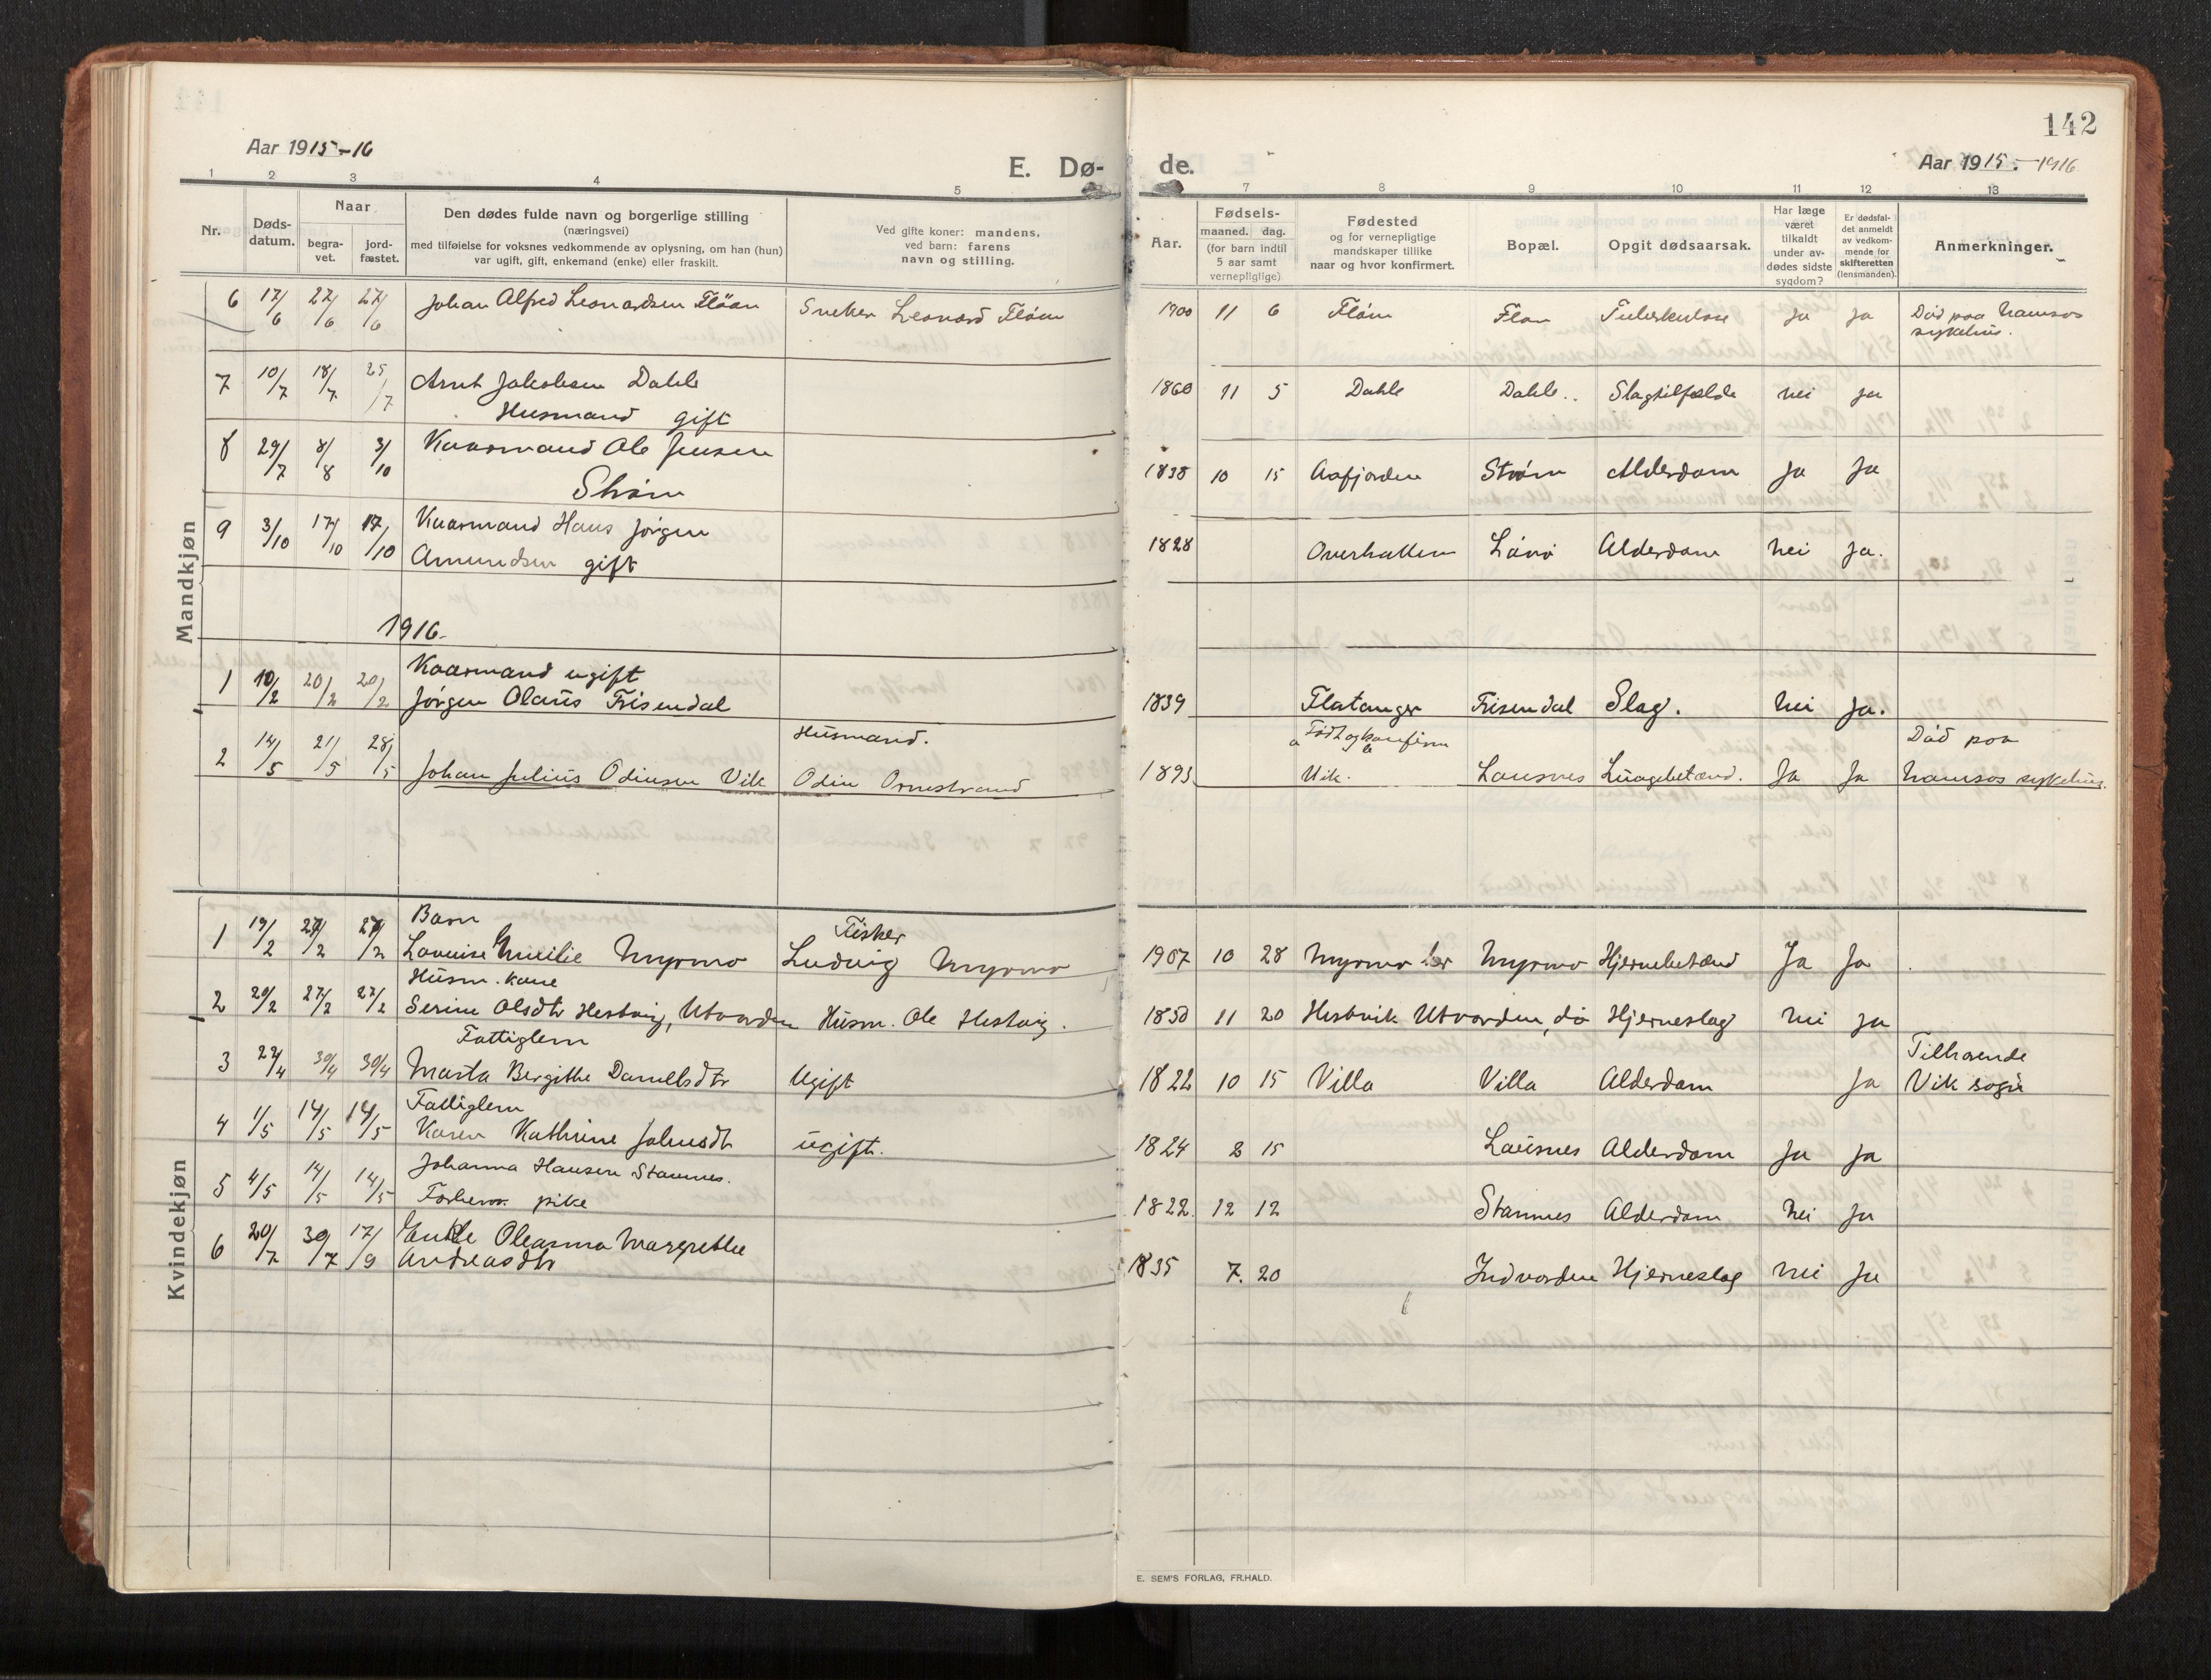 142
Aar 1915-16
E. Dø-
de.
Aar 1915.-1916
1 2 3 4 5 7 8 9 10 11 12 13
Nr.
Døds-
datum.
Naar
begra-
vet.
jord-
fæstet.
Den dødes fulde navn og borgerlige stilling
(næringsvei)
med tilføielse for voksnes vedkommende av oplysning, om han (hun)
var ugift, gift, enkemand (enke) eller fraskilt.
Ved gifte koner: mandens,
ved barn: farens
navn og stilling.
Aar.
Fødsels-
maaned. dag.
(for barn indtil
5 aar samt
vernepligtige)
Fødested
og for vernepligtige
mandskaper tillike
naar og hvor konfirmert.
Bopæl.
Opgit dødsaarsak.
Har læge
været
tilkaldt
under av-
dødes sidste
sygdom?
Er dødsfal-
det anmeldt
av vedkom-
mende for
skifteretten
(lensmanden).
Anmerkninger.
Mandkjøn
6 17/6 27/6 27/6 Johan Alfred Leonardsen Fløan Sneker Leonard Fløan 1900 11 6 Fløan Floan Tuberkulose Ja ja Död paa Namsos
sykehus.
7 10/7 18/7 25/7 Arnt Jakobsen Dahle 1860 11 5 Dahle Dahle.. Slagtilfælde nei ja
Husmand gift
8 29/7 8/8 3/10 Kaarmand Ole Jensen
Strøm 1838 10 15 Aafjorden Strøm Alderdom Ja Ja
9 3/10 17/10 17/10 Kaarmand Hans Jørgen
Amundsen gift 1828 Overhallen Lövö Alderdom Nei Ja.
1916.
Kaarmand ugift
1 10/2 20/2 20/2 Jørgen Olaus Frisendal 1839 Flatanger Frisendal Slag. Nei Ja.
Husmand. Født og konfirm Död paa
2 14/5 21/5 28/5 Johan Julius Odinsen Vik Odin Ornestrand 1893 Vik. Lausnes Lungebetænd. Ja Ja Namsos sykehus.
Kvindekjøn
Barn Fisker
1 19/2 27/2 27/2 Lovise Emilie Myrmo Ludvig Myrmo 1907 10 28 Myrmo Myrmo Hjernebetænd Ja Ja
Husm. kone
2 20/2 27/2 27/2 Serine Olsdtr Hestvig, Utvorden Husm. Ole Hestvig. 1850 11 20 Hestvik Utvorden, do Hjerneslag Nei Ja
Fattiglem Tilhörende
3 22/4 30/4 30/4 Marta Bergitte Danielsdtr Ugift 1822 10 15 Villa Villa Alderdom Ja Vik sogn
Fattiglem
4 1/5 14/5 14/5 Karen Kathrine Johnsdtr ugift. 1824 2 15 Lausnes Alderdom Ja Ja
Johanna Hansen Stamnes.
5 4/5 14/5 14/5 pike 1822. 12 12 Stamnes Alderdom Nei Ja
6 20/7 30/7 17/9 Enke Oleanna Margrethe
Andreasdtr 1835 7. 20 Indvorden Hjerneslag Nei Ja
E. SEM'S FORLAG, FR.HALD.